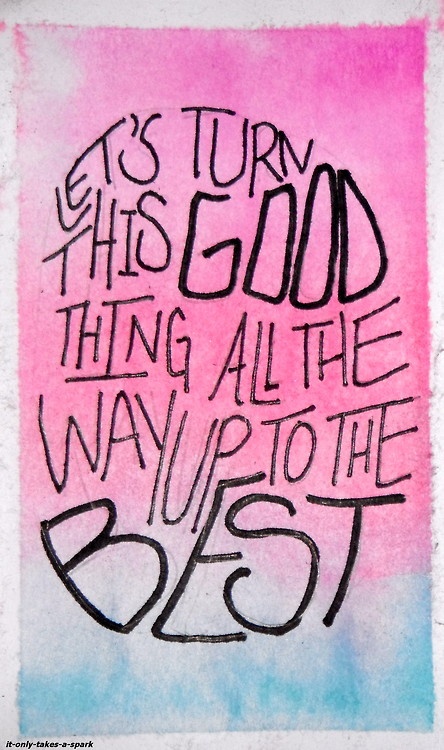 LET'S TURN
THIS GOOD
THING ALL THE
WAY UP TO THE
BEST
it-only-takes-a-spark